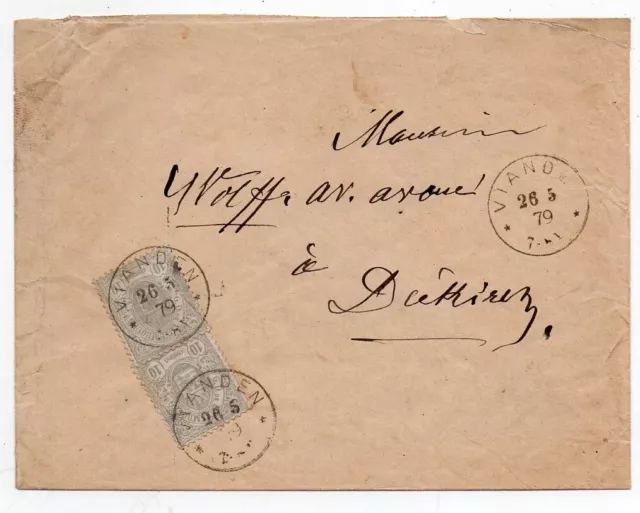 Monsieur
Wolff, av. avoué
à
Diekirch
VIANDEN
26 5
79
VIANDEN
26 5
79
10
10
VIANDEN
26 5
79